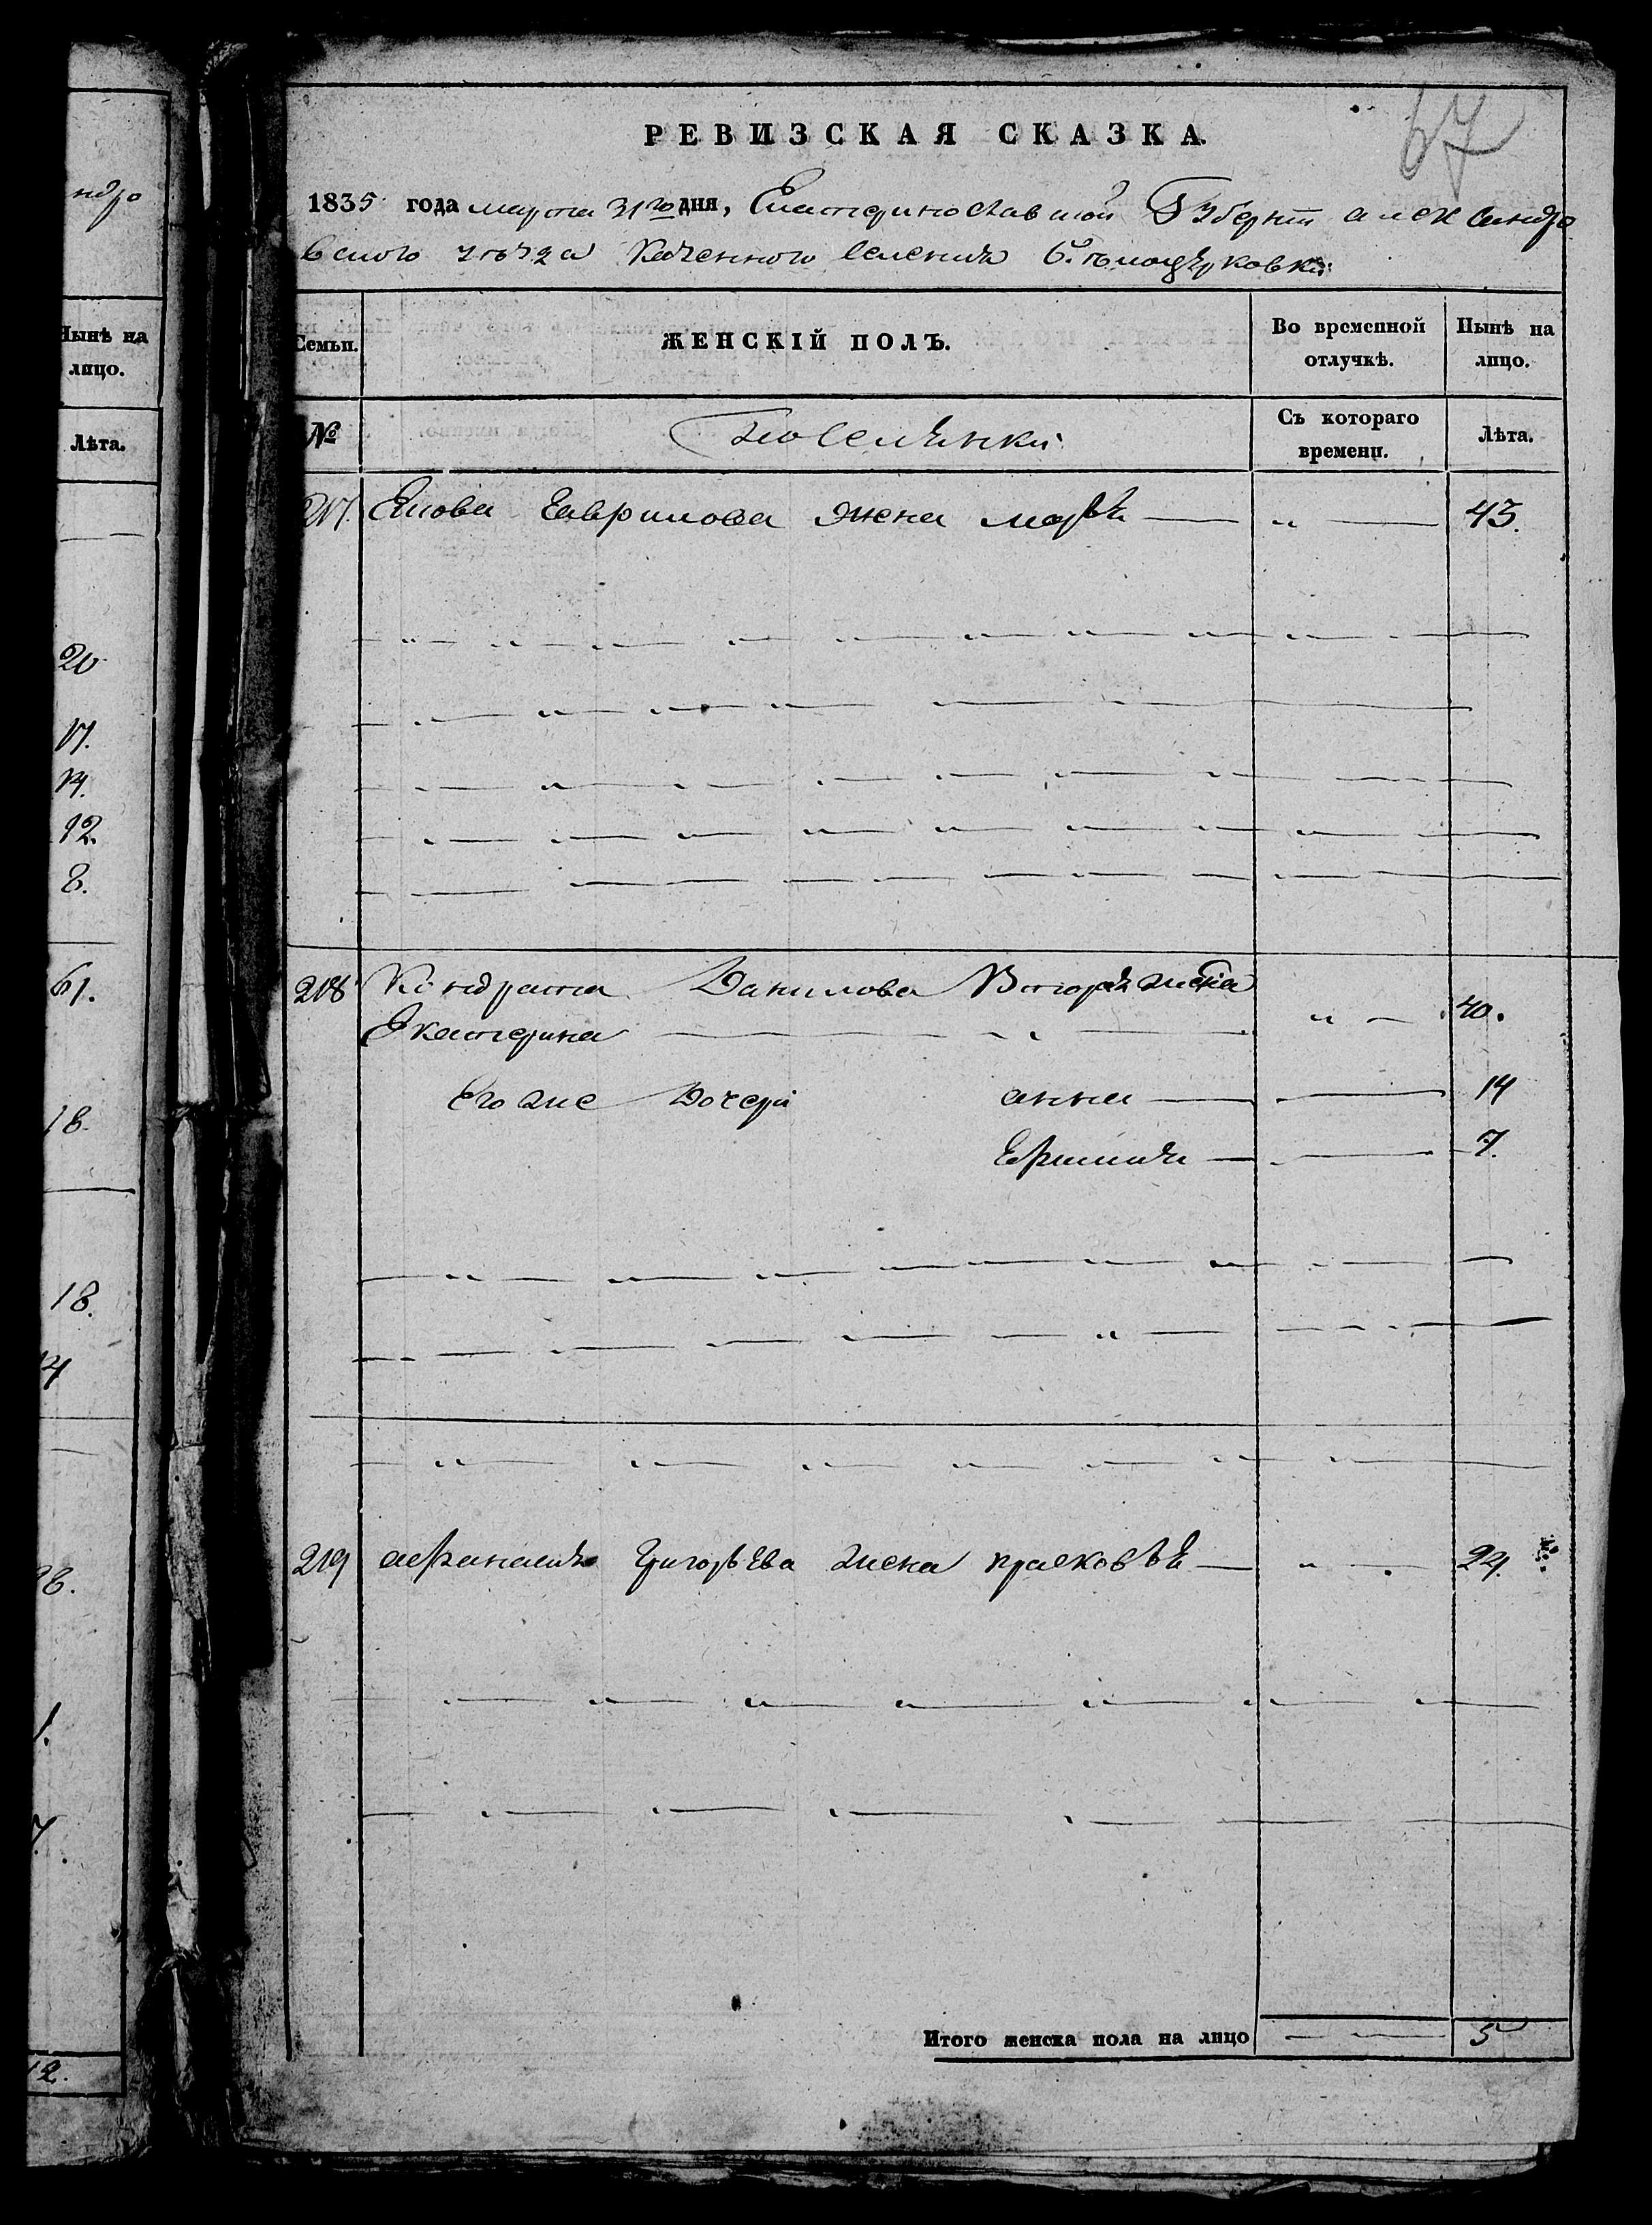 ндро
Нынѣ на
лицо.
Лѣта.
20
17.
14.
12.
8.
61.
18.
18.
14
28.
1.
7.
12.
67
РЕВИЗСКАЯ СКАЗКА.
1835 года марта 31го дня, Екатеринославской Губерніи александро
вского уѣзда Казенного Селения Бѣлоцерковки
Семьи. ЖЕНСКІЙ ПОЛЪ. Во временной отлучкѣ. Нынѣ на лицо.
№ Поселянки Съ котораго времени. Лѣта.
217. Якова Гаврилова жена марѳа 43.
218 Кондрата Данилова Вторая жена
Екатерина 40.
Его же Дочери анна 14
Ефимия 7.
219 афанасия Григорьева жена прасковья 24.
Итого женска пола на лицо 5